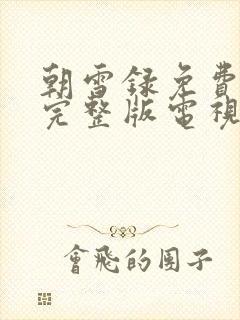 朝雪録免費
完整版電視
會飛的團子